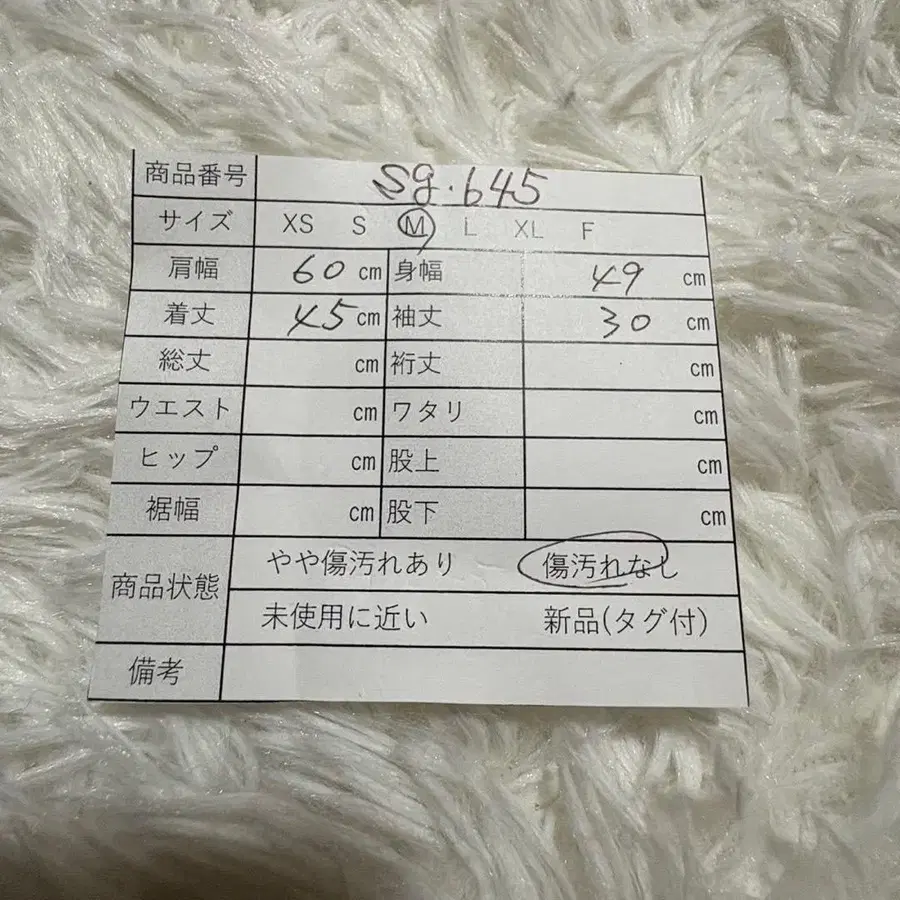 商品番号 sg.645
サイズ XS S M L XL F
肩幅 60 cm 身幅 49 cm
着丈 45 cm 袖丈 30 cm
総丈 cm 裄丈 cm
ウエスト cm ワタリ cm
ヒップ cm 股上 cm
裾幅 cm 股下 cm
商品状態 やや傷汚れあり 傷汚れなし
未使用に近い 新品(タグ付)
備考